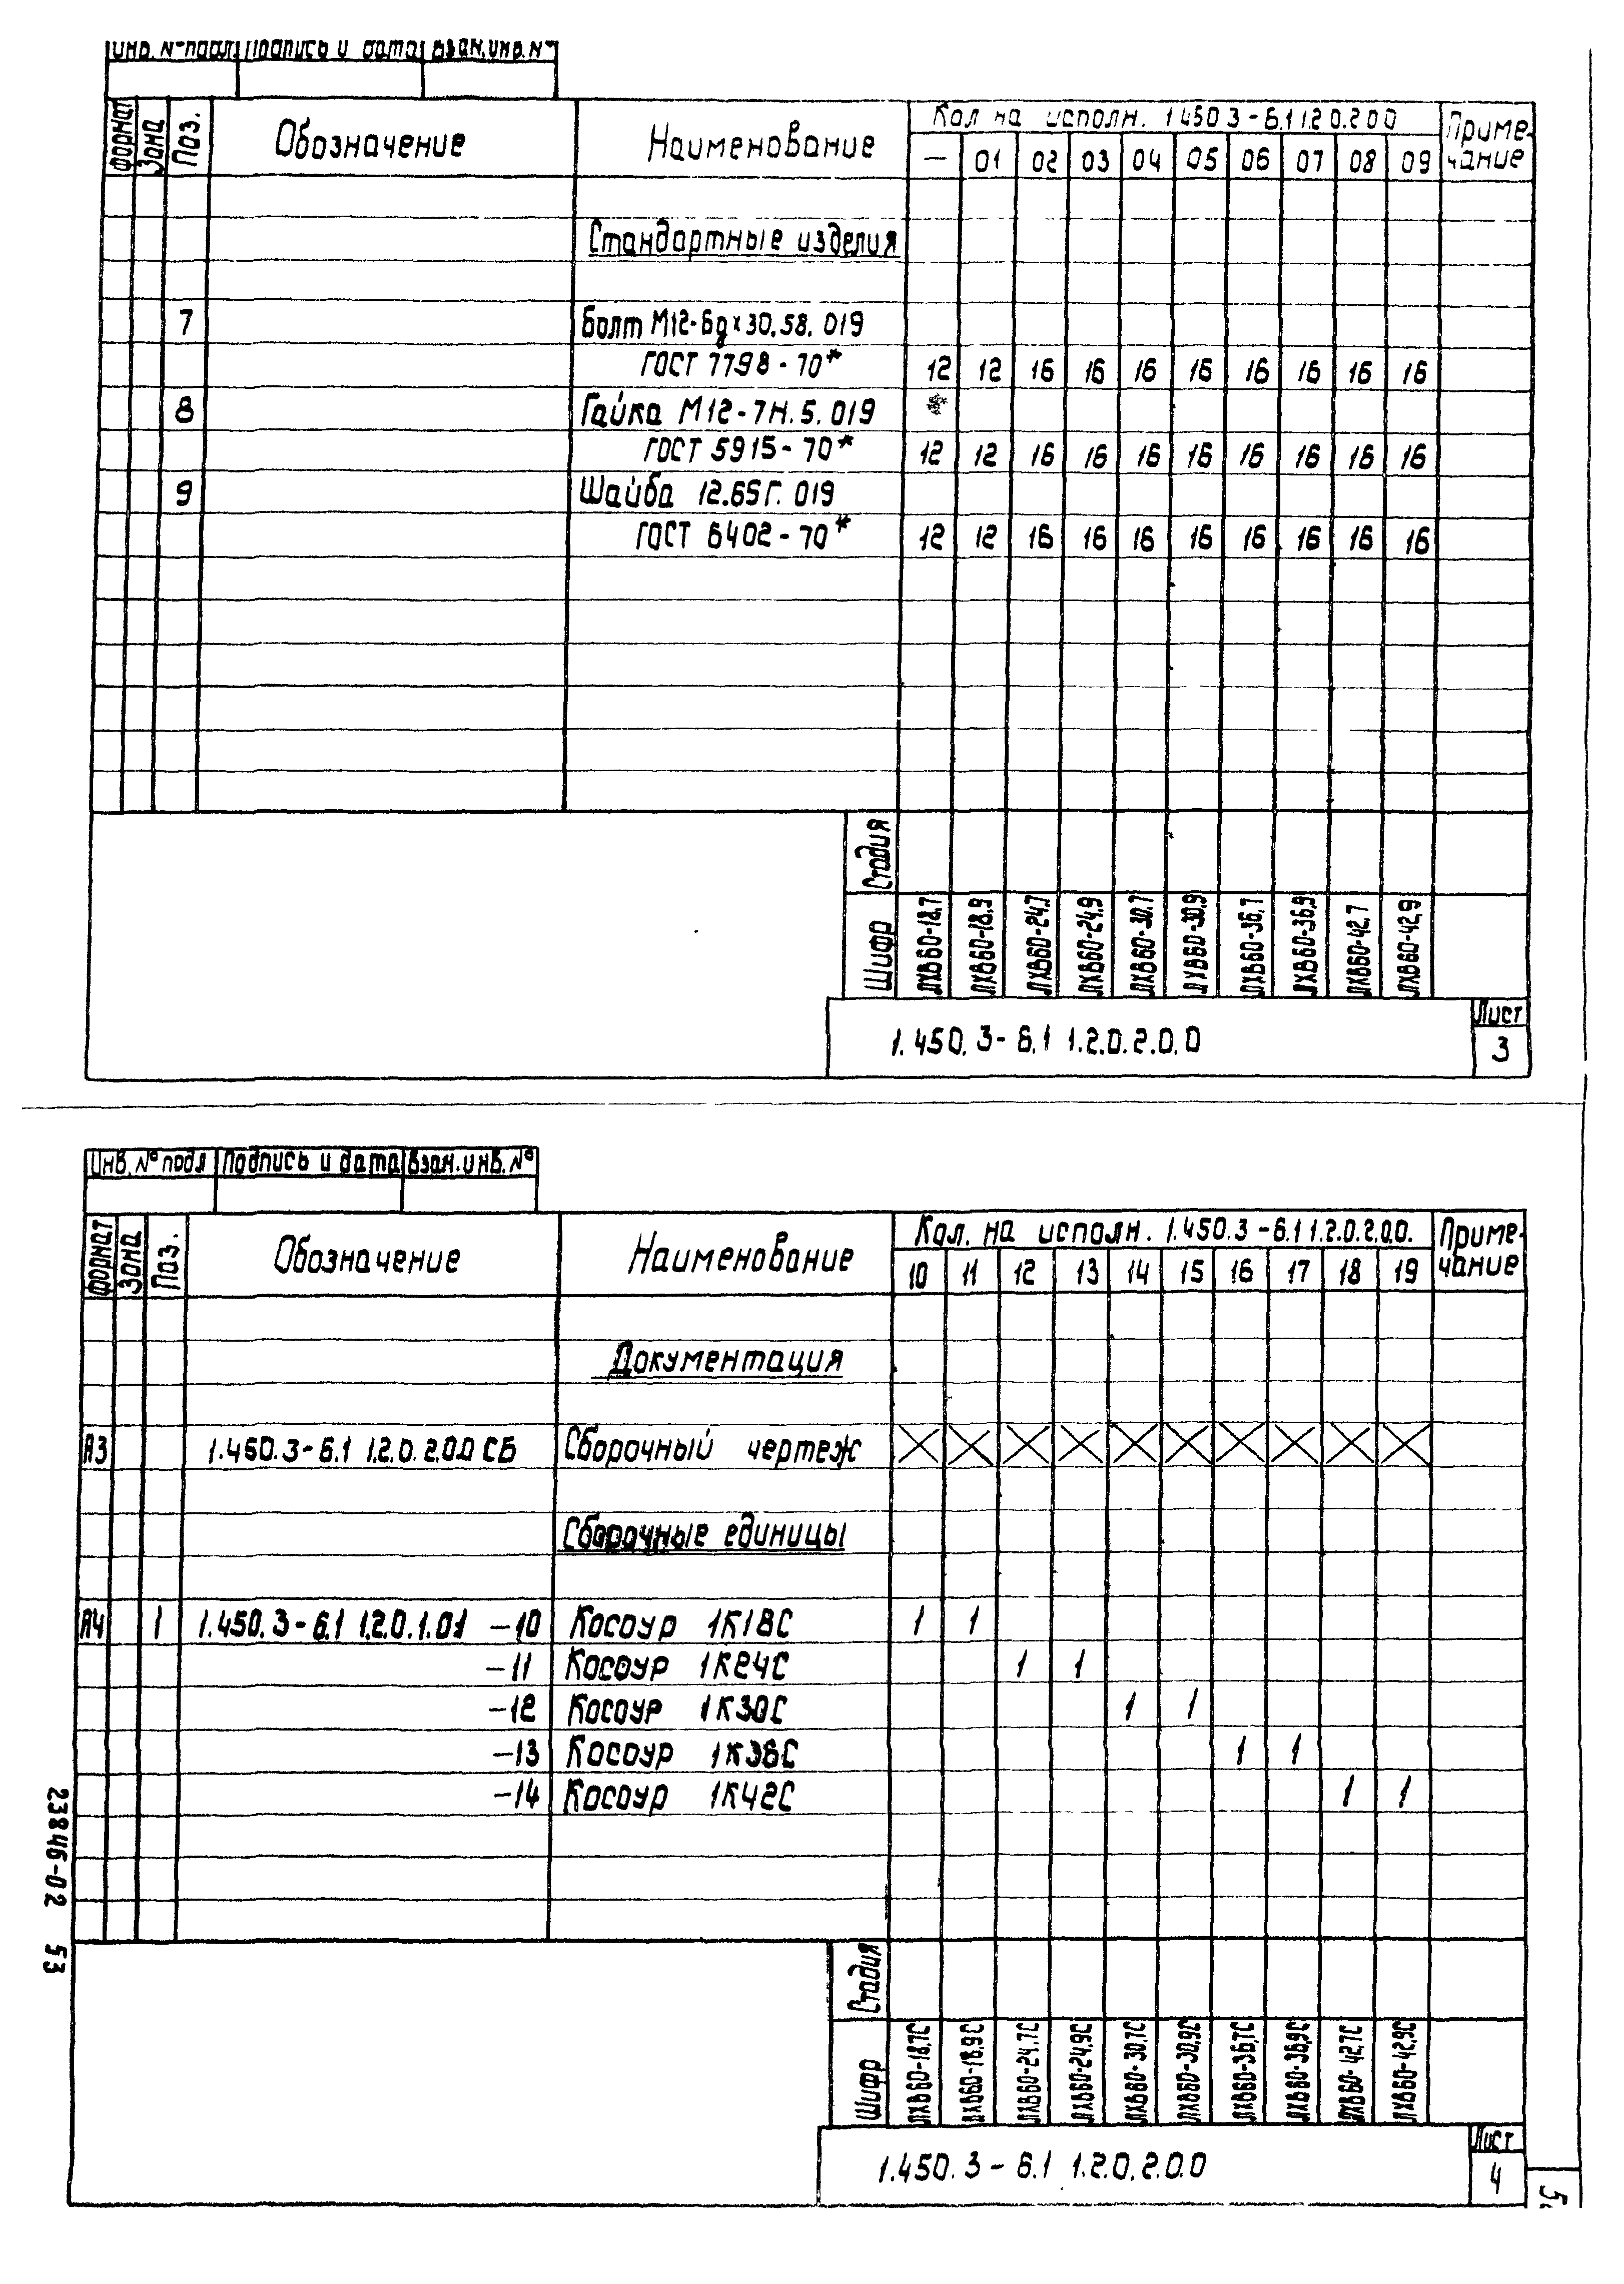 Инв. № подл. Подпись и дата Взам. инв. №
Формат Зона Поз. Обозначение Наименование Кол на исполн. 1 450 3 - 6.1 1.2 0.2 0 0 Приме-
чание
— 01 02 03 04 05 06 07 08 09
Стандартные изделия
7 Болт М12-6g×30.58.019
ГОСТ 7798-70* 12 12 16 16 16 16 16 16 16 16
8 Гайка М12-7Н.5.019
ГОСТ 5915-70* 12 12 16 16 16 16 16 16 16 16
9 Шайба 12.65Г.019
ГОСТ 6402-70* 12 12 16 16 16 16 16 16 16 16
Стадия
Шифр ЛХВ60-18,7 ЛХВ60-18,9 ЛХВ60-24,7 ЛХВ60-24,9 ЛХВ60-30,7 ЛХВ60-30,9 ЛХВ60-36,7 ЛХВ60-36,9 ЛХВ60-42,7 ЛХВ60-42,9
1.450.3-6.1 1.2.0.2.0.0
Лист
3
Инв. № подл Подпись и дата Взам. инв. №
Формат Зона Поз. Обозначение Наименование Кол. на исполн. 1.450.3-6.1 1.2.0.2.0.0. Приме-
чание
10 11 12 13 14 15 16 17 18 19
Документация
А3 1.450.3-6.1 1.2.0.2.0.0 СБ Сборочный чертеж
Сборочные единицы
А4 1 1.450.3-6.1 1.2.0.1.01 -10 Косоур 1К18С 1 1
-11 Косоур 1К24С 1 1
-12 Косоур 1К30С 1 1
-13 Косоур 1К36С 1 1
-14 Косоур 1К42С 1 1
Стадия
Шифр ЛХВ60-18,7С ЛХВ60-18,9С ЛХВ60-24,7С ЛХВ60-24,9С ЛХВ60-30,7С ЛХВ60-30,9С ЛХВ60-36,7С ЛХВ60-36,9С ЛХВ60-42,7С ЛХВ60-42,9С
1.450.3-6.1 1.2.0.2.0.0
Лист
4
23846-02 53